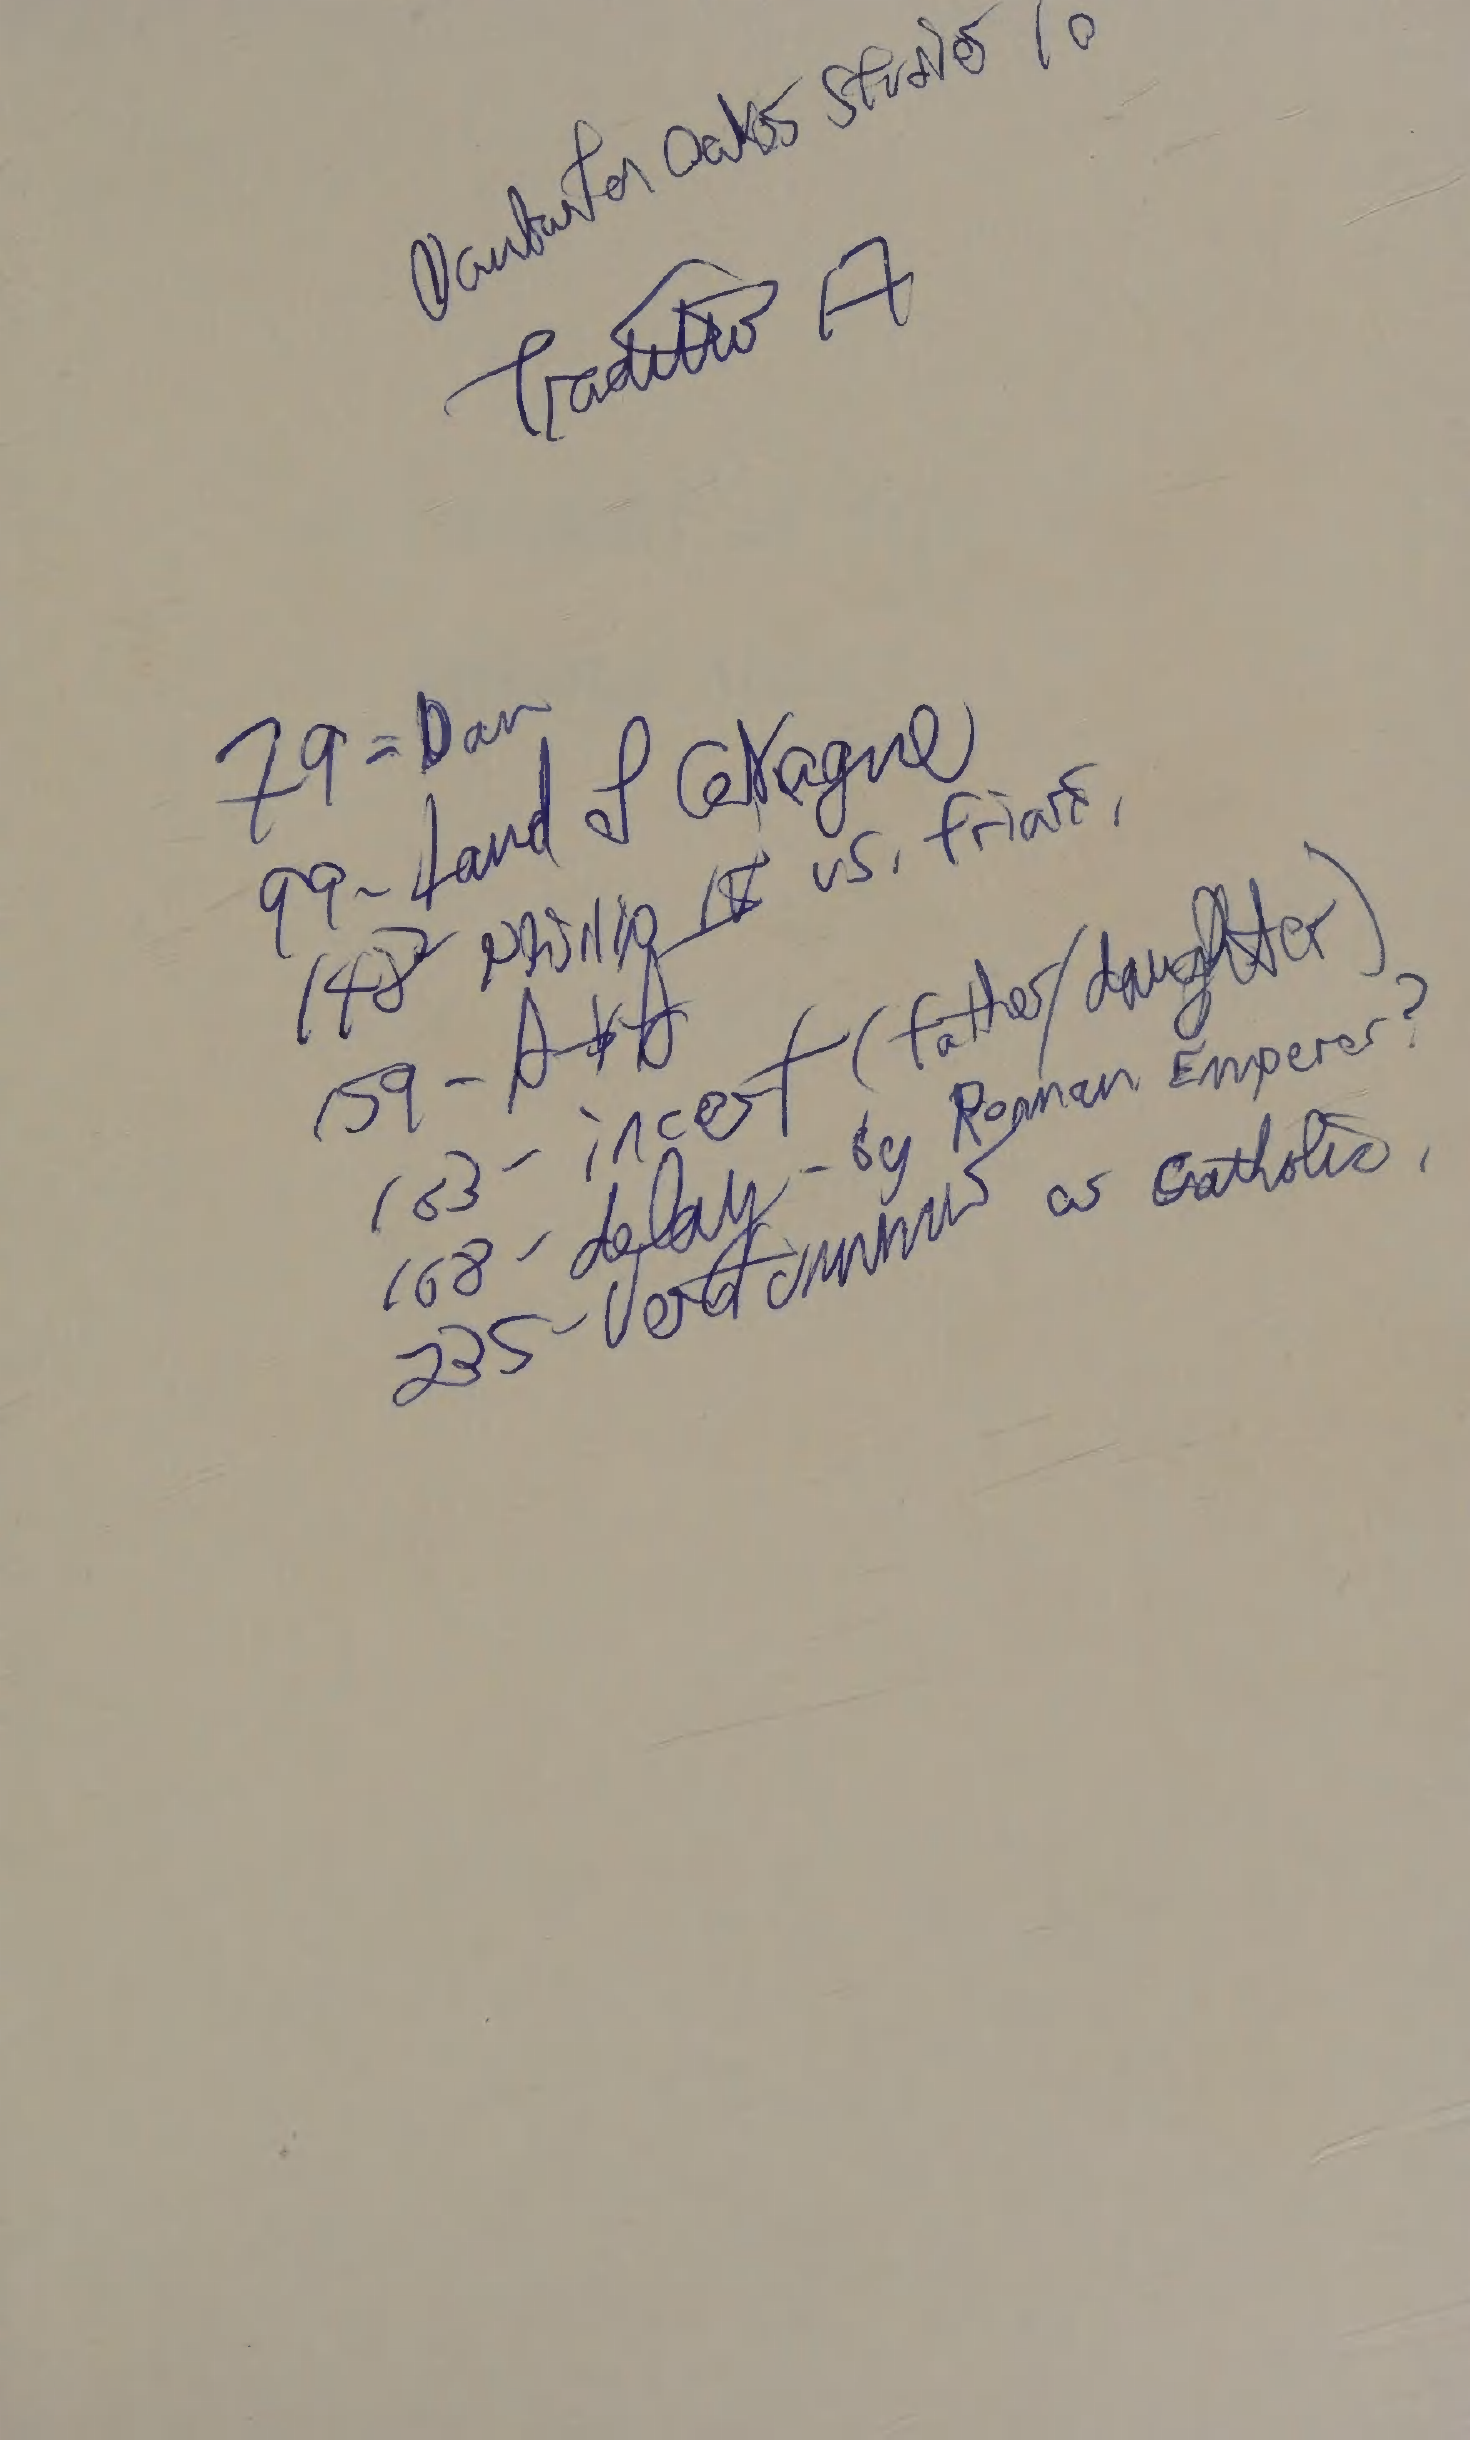 Oaks Studies 10
A
79 = Dan
99 - Land of Cockagne
148 Philip IV vs. friars.
159 - A + A
163 - incest (father/daughter)
168 - delay - by Roman Emperer?
235 - Vertumnus as Catholic.